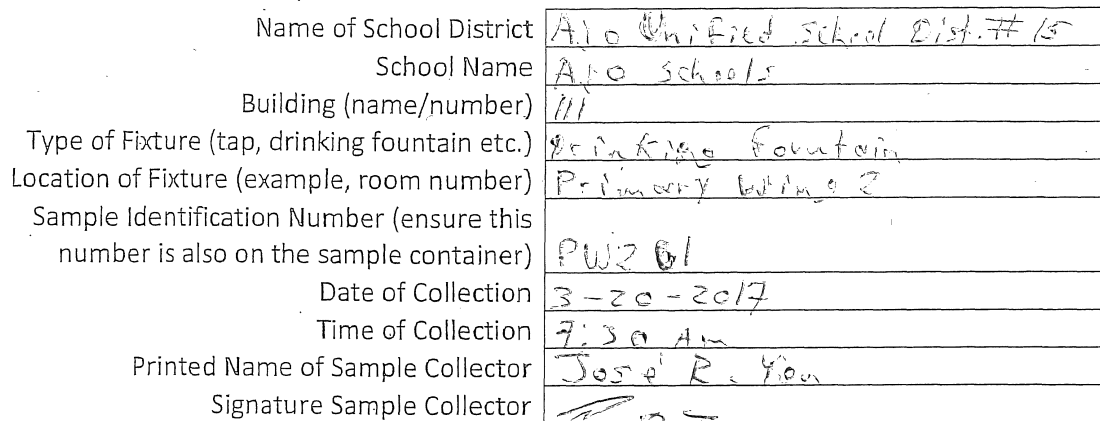 Name of School District Ajo Unified School Dist. # 15
School Name Ajo Schools
Building (name/number) 111
Type of Fixture (tap, drinking fountain etc.) Drinking Fountain
Location of Fixture (example, room number) Primary Wing 2
Sample Identification Number (ensure this
number is also on the sample container) PW2 01
Date of Collection 3-20-2017
Time of Collection 7:30 Am
Printed Name of Sample Collector José R.
Signature Sample Collector